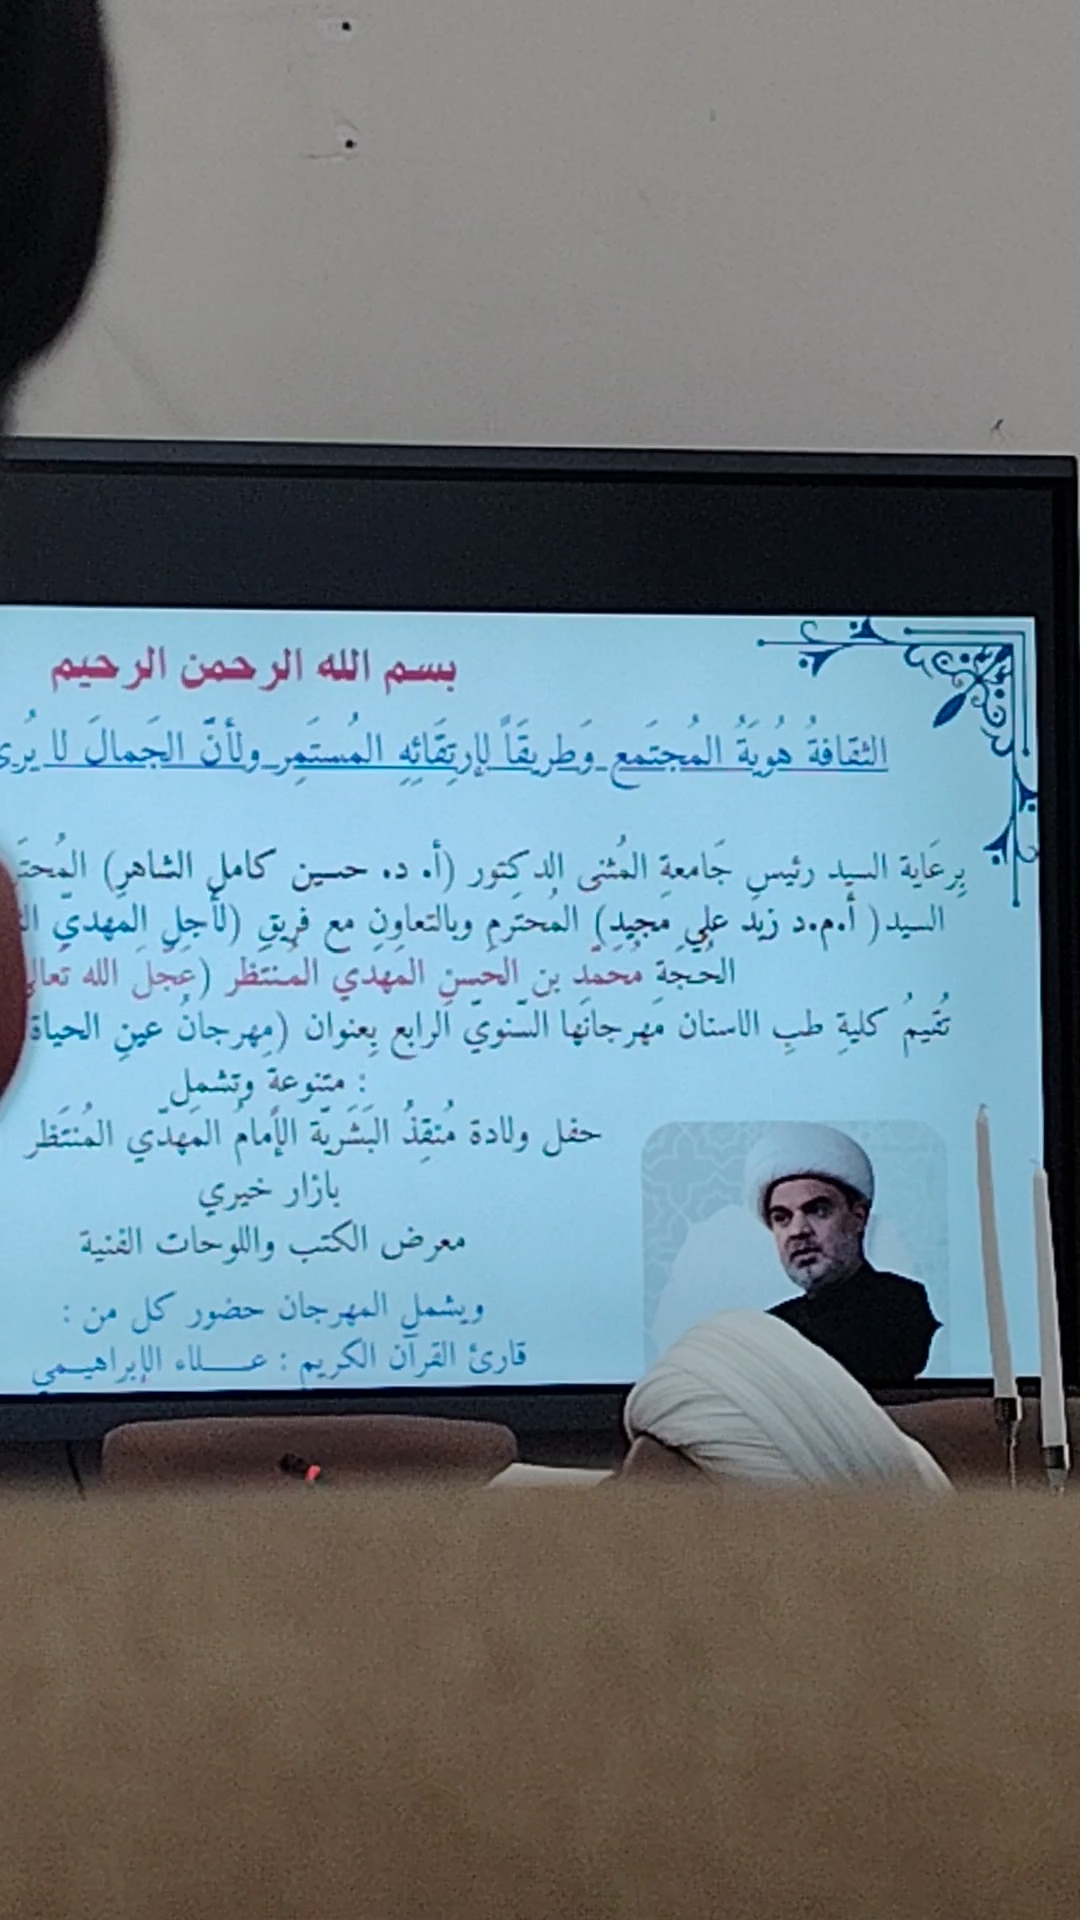 بسم الله الرحمن الرحيم
الثقافةُ هُويَةُ المُجتَمع وَطريقَاً لإرتِقَائِهِ المُستَمِر ولأنّ الجَمالَ لا يُرى
بِرعَاية السيد رئيسِ جَامعةِ المُثنى الدكتور (أ. د. حسين كامل الشاهر)
السيد( أ.م.د زيد علي مجيد) المُحترم وبالتعاون مع فريقِ (لأجلِ المهديّ
الحُجةِ مُحمّد بن الحَسنِ المَهدي المُنتَظر (عَجلَ الله تعالى
تُقيمُ كليةِ طبِ الاسنان مَهرجانَها السّنويّ الرابع بِعنوان (مِهرجانُ عينِ الحياة
متنوعة وتشمل :
حفل ولادة مُنقِذُ البَشَريّة الإمامُ المَهدّي المُنتَظر
بازار خيري
معرض الكتب واللوحات الفنية
ويشمل المهرجان حضور كل من :
قارئ القرآن الكريم : عــلاء الإبراهيـمي